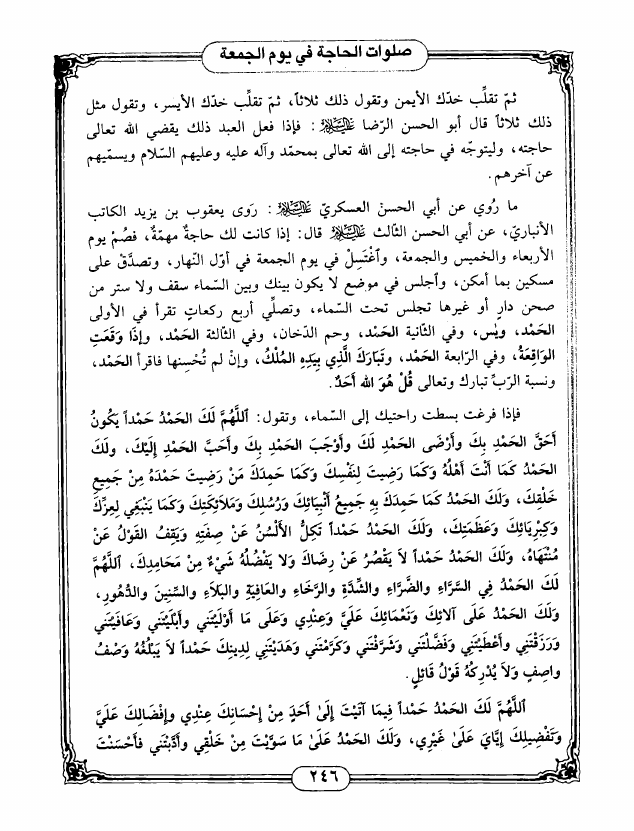 صلوات الحاجة في يوم الجمعة
ثمّ تقلّب خدّك الأيمن وتقول ذلك ثلاثاً، ثمّ تقلّب خدّك الأيسر، وتقول مثل
ذلك ثلاثاً قال أبو الحسن الرّضا عَلَيْهِ السَّلام: فإذا فعل العبد ذلك يقضي الله تعالى
حاجته، وليتوجّه في حاجته إلى الله تعالى بمحمّد وآله عليه وعليهم السّلام ويسمّيهم
عن آخرهم.
ما رُوي عن أبي الحسن العسكريّ عَلَيْهِ السَّلام: رَوى يعقوب بن يزيد الكاتب
الأنباريّ، عن أبي الحسن الثّالث عَلَيْهِ السَّلام قال: إذا كانت لك حاجةٌ مهمّةٌ، فصُمْ يوم
الأربعاء والخميس والجمعة، وٱغْتَسِلْ في يوم الجمعة في أوّل النّهار، وتصدَّقْ على
مسكين بما أمكن، وٱجلس في موضع لا يكون بينك وبين السّماء سقف ولا ستر من
صحن دارٍ أو غيرها تجلس تحت السّماء، وتصلّي أربع ركعاتٍ تقرأ في الأولى
الحَمْد، ويٰس، وفي الثّانية الحَمْد، وحم الدّخان، وفي الثّالثة الحَمْد، وإذَا وَقَعَتِ
الوَاقِعَةُ، وفي الرّابعة الحَمْد، وتَبَارَكَ الَّذِي بِيَدِهِ المُلْكُ، وإنْ لم تُحْسِنها فاقرأ الحَمْد،
ونسبة الرّبّ تبارك وتعالى قُلْ هُوَ الله أَحَدٌ.
فإذا فرغت بسطت راحتيك إلى السّماء، وتقول: اَللَّهُمَّ لَكَ الحَمْدُ حَمْداً يَكُونُ
أحَقَّ الحَمْدِ بِكَ وأرْضَى الحَمْدِ لَكَ وأوْجَبَ الحَمْدِ بِكَ وأحَبَّ الحَمْدِ إِلَيْكَ، ولَكَ
الحَمْدُ كَمَا أنْتَ أهْلُهُ وكَمَا رَضِيتَ لِنَفْسِكَ وكَمَا حَمِدَكَ مَنْ رَضِيتَ حَمْدَهُ مِنْ جَمِيعِ
خَلْقِكَ، ولَكَ الحَمْدُ كَمَا حَمِدَكَ بِهِ جَمِيعُ أنْبِيَائِكَ وَرُسُلِكَ وَمَلاَئِكَتِكَ وكَمَا يَنْبَغِي لِعِزِّكَ
وَكِبْرِيَائِكَ وَعَظَمَتِكَ، ولَكَ الحَمْدُ حَمْداً تَكِلُّ الألْسُنُ عَنْ صِفَتِهِ وَيَقِفُ القَوْلُ عَنْ
مُنْتَهَاهُ، ولَكَ الحَمْدُ حَمْداً لاَ يَقْصُرُ عَنْ رِضَاكَ وَلاَ يَفْضُلُهُ شَيْءٌ مِنْ مَحَامِدِكَ، اَللَّهُمَّ
لَكَ الحَمْدُ فِي السَّرَّاءِ والضَّرَّاءِ والشِّدَّةِ والرَّخَاءِ والعَافِيَةِ والبَلاَءِ والسِّنِينَ والدُّهُورِ،
وَلَكَ الحَمْدُ عَلَى آلائِكَ ونَعْمَائِكَ عَلَيَّ وَعِنْدِي وَعَلَى مَا أوْلَيْتَنِي وأبْلَيْتَنِي وعَافَيْتَنِي
وَرَزَقْتَنِي وأعْطَيْتَنِي وَفَضَّلْتَنِي وَشَرَّفْتَنِي وكَرَّمْتَنِي وَهَدَيْتَنِي لِدِينِكَ حَمْداً لاَ يَبْلُغُهُ وَصْفُ
واصِفٍ وَلاَ يُدْرِكُهُ قَوْلُ قَائِلٍ.
اَللَّهُمَّ لَكَ الحَمْدُ حَمْداً فِيمَا آتَيْتَ إلىٰ أحَدٍ مِنْ إحْسَانِكَ عِنْدِي وإفْضَالِكَ عَلَيَّ
وَتَفْضِيلِكَ إيَّايَ عَلىٰ غَيْرِي، ولَكَ الحَمْدُ عَلىٰ مَا سَوَّيْتَ مِنْ خَلْقِي وأدَّبْتَنِي فَأحْسَنْتَ
٢٤٦